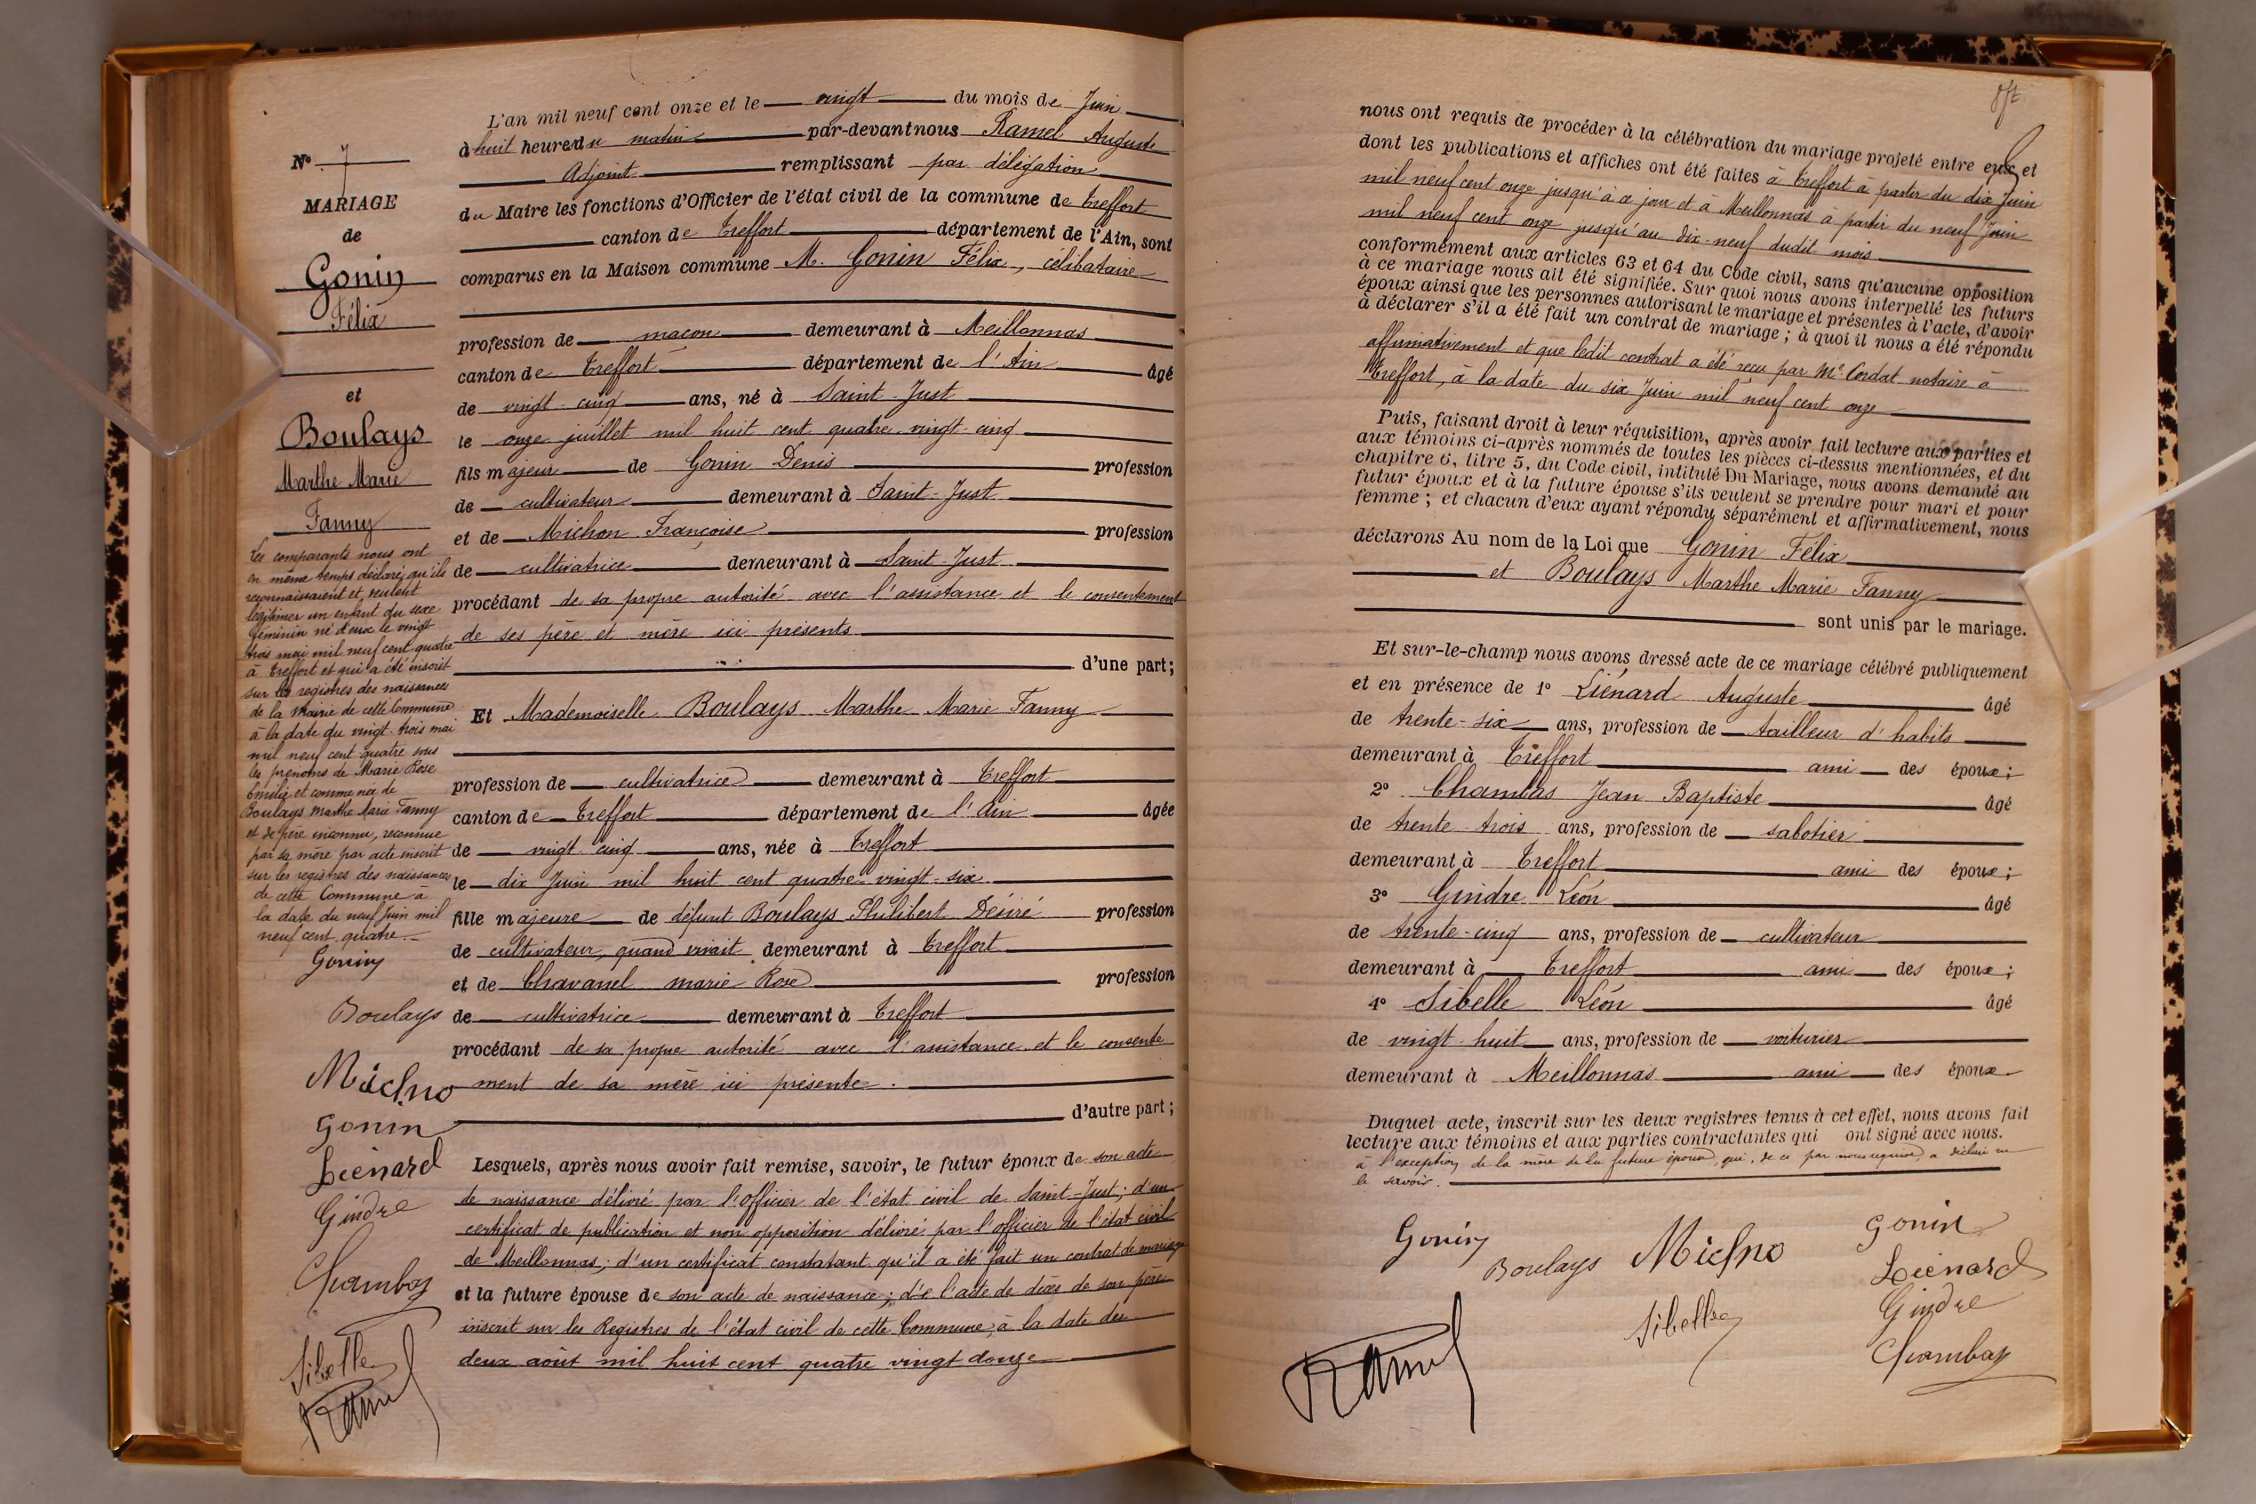 N° 7
MARIAGE
de
Gonin
Félix
et
Boulays
Marthe Marie
Fanny
Les comparants nous ont
en même temps déclaré qu'ils
reconnaissaient et veulent
légitimer un enfant du sexe
féminin né d'eux le vingt
trois mai mil neuf cent quatre
à Treffort et qui a été inscrit
sur les registres des naissances
de la mairie de cette Commune
à la date du vingt-trois mai
mil neuf cent quatre sous
les prénoms de Marie Rose
Emilie et comme née de
Boulays Marthe Marie Fanny
et de père inconnu, reconnue
par sa mère par acte inscrit
sur les registres des naissances
de cette Commune à
la date du neuf Juin mil
neuf cent quatre.
Gonin
Boulays
Michno
Gonin
Liénard
Gindre
Chambas
Sibelle
Ramel
L'an mil neuf cent onze et le vingt du mois de Juin
à huit heures du matin par-devant nous Ramel Auguste
Adjoint remplissant par délégation
du Maire les fonctions d'Officier de l'état civil de la commune de Treffort
canton de Treffort département de l'Ain, sont
comparus en la Maison commune M. Gonin Félix, célibataire
profession de maçon demeurant à Meillonnas
canton de Treffort département de l'Ain âgé
de vingt-cinq ans, né à Saint-Just
le onze juillet mil huit cent quatre-vingt-cinq
fils majeur de Gonin Denis profession
de cultivateur demeurant à Saint-Just
et de Michon Françoise profession
de cultivatrice demeurant à Saint-Just
procédant de sa propre autorité avec l'assistance et le consentement
de ses père et mère ici présents
d'une part;
Et Mademoiselle Boulays Marthe Marie Fanny
profession de cultivatrice demeurant à Treffort
canton de Treffort département de l'Ain âgée
de vingt-cinq ans, née à Treffort
le dix Juin mil huit cent quatre-vingt-six
fille majeure de défunt Boulays Philibert Désiré profession
de cultivateur, quand vivait demeurant à Treffort
et de Chavanel Marie Rose profession
de cultivatrice demeurant à Treffort
procédant de sa propre autorité avec l'assistance et le consente
ment de sa mère ici présente.
d'autre part;
Lesquels, après nous avoir fait remise, savoir, le futur époux de son acte
de naissance délivré par l'officier de l'état civil de Saint-Just; d'un
certificat de publication et non opposition délivré par l'officier de l'état civil
de Meillonnas; d'un certificat constatant qu'il a été fait un contrat de mariage
et la future épouse de son acte de naissance; de l'acte de décès de son père
inscrit sur les Registres de l'état civil de cette Commune, à la date du
deux août mil huit cent quatre vingt douze
nous ont requis de procéder à la célébration du mariage projeté entre eux et
dont les publications et affiches ont été faites à Treffort à partir du dix Juin
mil neuf cent onze jusqu'à ce jour et à Meillonnas à partir du neuf Juin
mil neuf cent onze jusqu'au dix-neuf dudit mois
conformément aux articles 63 et 64 du Code civil, sans qu'aucune opposition
à ce mariage nous ait été signifiée. Sur quoi nous avons interpellé les futurs
époux ainsi que les personnes autorisant le mariage et présentes à l'acte, d'avoir
à déclarer s'il a été fait un contrat de mariage; à quoi il nous a été répondu
affirmativement et que ledit contrat a été reçu par Me Cordat notaire à
Treffort, à la date du six Juin mil neuf cent onze
Puis, faisant droit à leur réquisition, après avoir fait lecture aux parties et
aux témoins ci-après nommés de toutes les pièces ci-dessus mentionnées, et du
chapitre 6, titre 5, du Code civil, intitulé Du Mariage, nous avons demandé au
futur époux et à la future épouse s'ils veulent se prendre pour mari et pour
femme; et chacun d'eux ayant répondu séparément et affirmativement, nous
déclarons Au nom de la Loi que Gonin Félix
et Boulays Marthe Marie Fanny
sont unis par le mariage.
Et sur-le-champ nous avons dressé acte de ce mariage célébré publiquement
et en présence de 1° Liénard Auguste âgé
de trente-six ans, profession de tailleur d'habits
demeurant à Treffort ami des époux;
2° Chambas Jean Baptiste âgé
de trente trois ans, profession de sabotier
demeurant à Treffort ami des époux;
3° Gindre Léon âgé
de trente-cinq ans, profession de cultivateur
demeurant à Treffort ami des époux;
4° Sibelle Léon âgé
de vingt-huit ans, profession de voiturier
demeurant à Meillonnas ami des époux
Duquel acte, inscrit sur les deux registres tenus à cet effet, nous avons fait
lecture aux témoins et aux parties contractantes qui ont signé avec nous.
à l'exception de la mère de la future épouse, qui, de ce par nous requise, a déclaré ne
le savoir.
Gonin
Boulays
Michno
Gonin
Liénard
Gindre
Sibelle
Chambas
Ramel